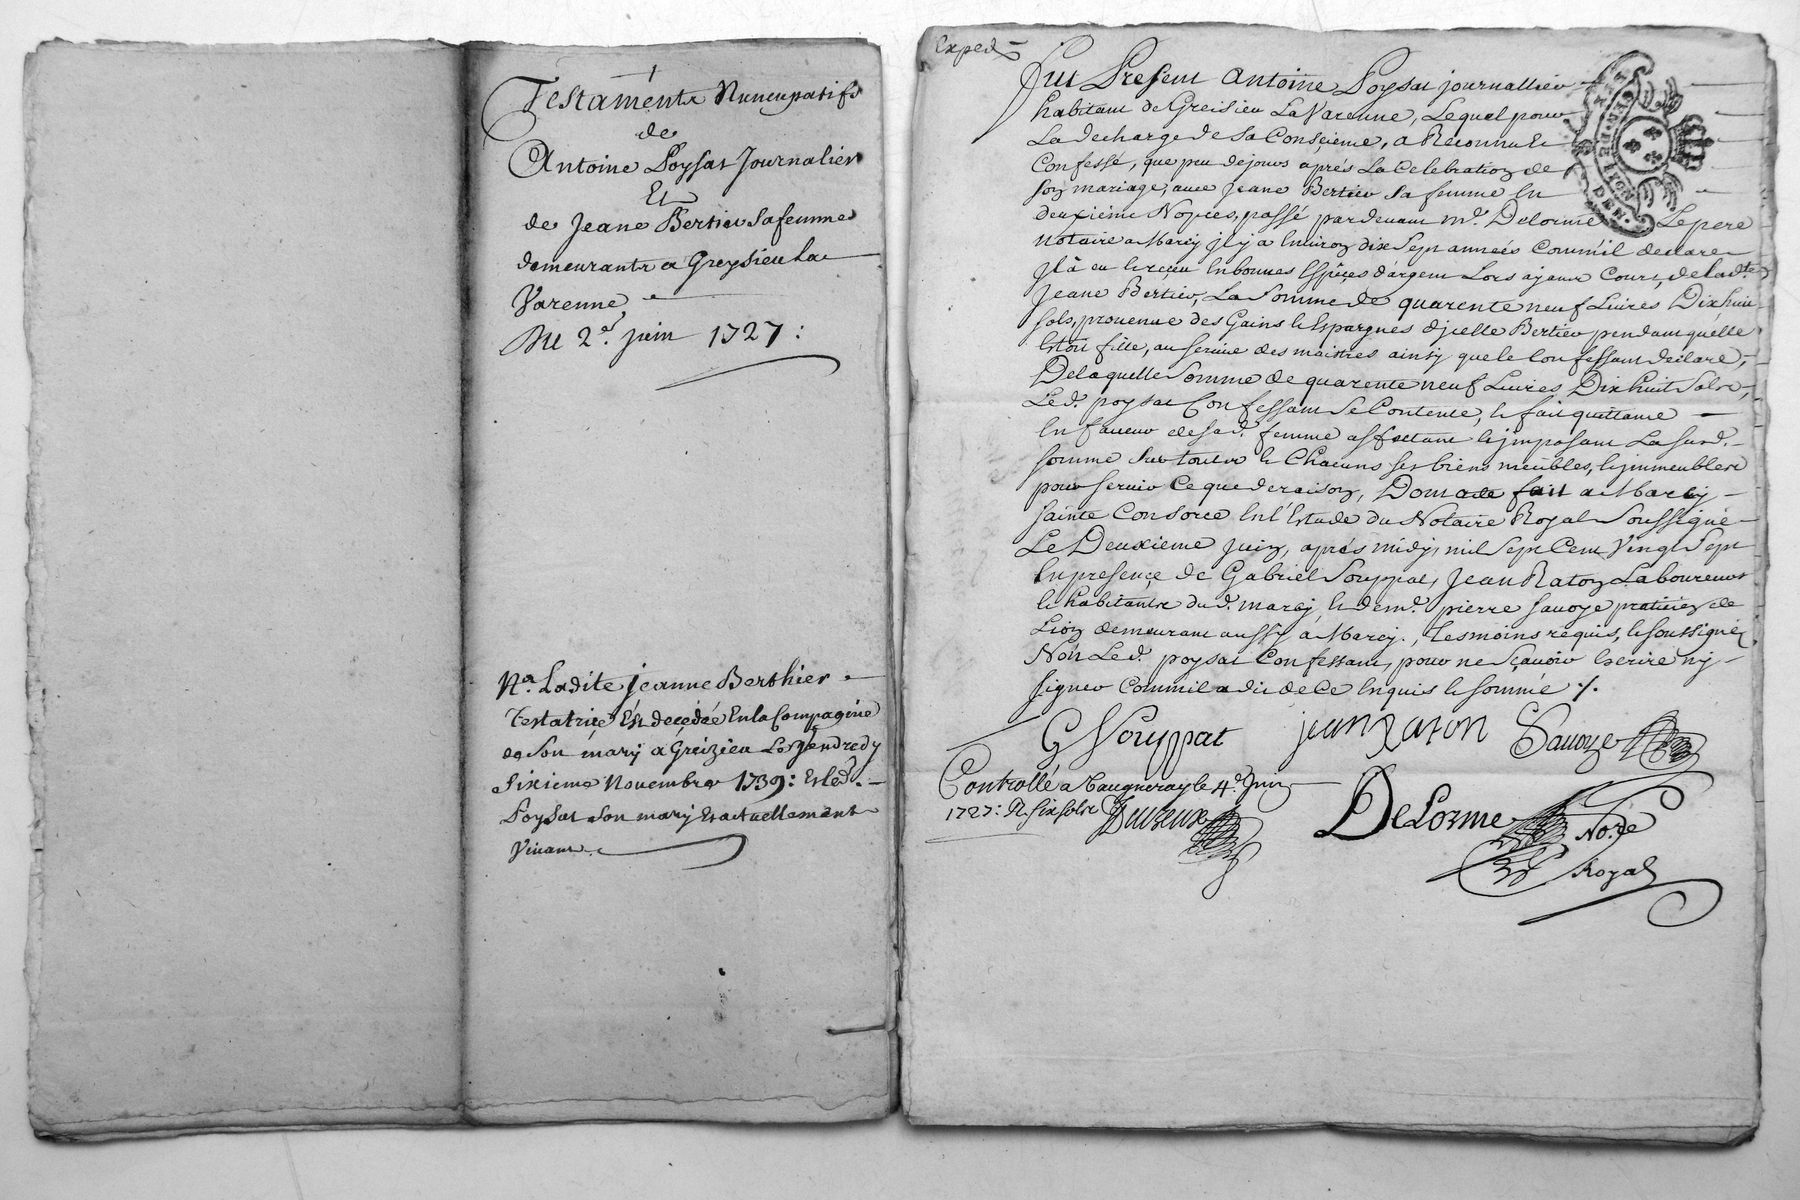 Testaments Nuncupatifs
de
Antoine Poysat Journalier
Et
de Jeane Bertier sa femme
demeurants a Greysieu La
Varenne
Du 2e. Juin 1727 :
Na. Ladite jeanne Berthier
testatrice Est decedée En la Compagnie
de Son mary a Greizieu Le Vendredy
Sixieme Novembre 1739 : Et led.
Poysat son mary Est actuellement
Vivant.
Exped
Fut Present Antoine Poysat journallier
habitant de Greisieu La Varenne, Lequel pour
La decharge de Sa Conscience, a Reconnu &
Confessé, que peu de jours aprés La Celebration de
son mariage, avec Jeane Bertier Sa femme En
deuxiéme Nopces, passé pardevant Me. Delorme Le pere
Notaire a Marcy il y a Environ dix Sept années Comm'il declare
Il à eu & receu En bonnes Espéces d'argent Lors ayant Cours, de ladte.
Jeane Bertier, La Somme de quarente neuf Livres Dix huit
sols, provenue des Gains & Espargnes d'jcelle Bertier pendant qu'elle
Estoit fille, au service des maistres ainsy que le Confessant declare,
De laquelle Somme de quarente neuf Livres Dix huit Sols,
Led. poysat Confessant Se Contente, & fait quittance
En faveur de sad. femme affectant & jmposant La susd.
somme Sur touts & Chacuns ses biens meubles, & jmmeubles
pour servir Ce que de raison, Dont acte fait a Marcy
sainte Consorce En l'Estude du Notaire Royal Soussigné
Le Deuxieme juin, aprés midy, mil Sept Cent Vingt Sept
En presence de Gabriel Souppat, Jean Raton Laboureurs
& habitants dud. marcy, & de me. pierre Savoye praticien de
Lion demeurant aussy a Marcy, tesmoins requis, & soussignéz
Non Led. poysat Confessant, pour ne Sçavoir Escrire ny
signer Comm'il a dit de Ce Enquis & sommé ./.
G Souppat jean Raton Savoye
Controllé a Vaugneray le 4e. Juin
1727 : R. six sols
DeLorme Nore
Royal